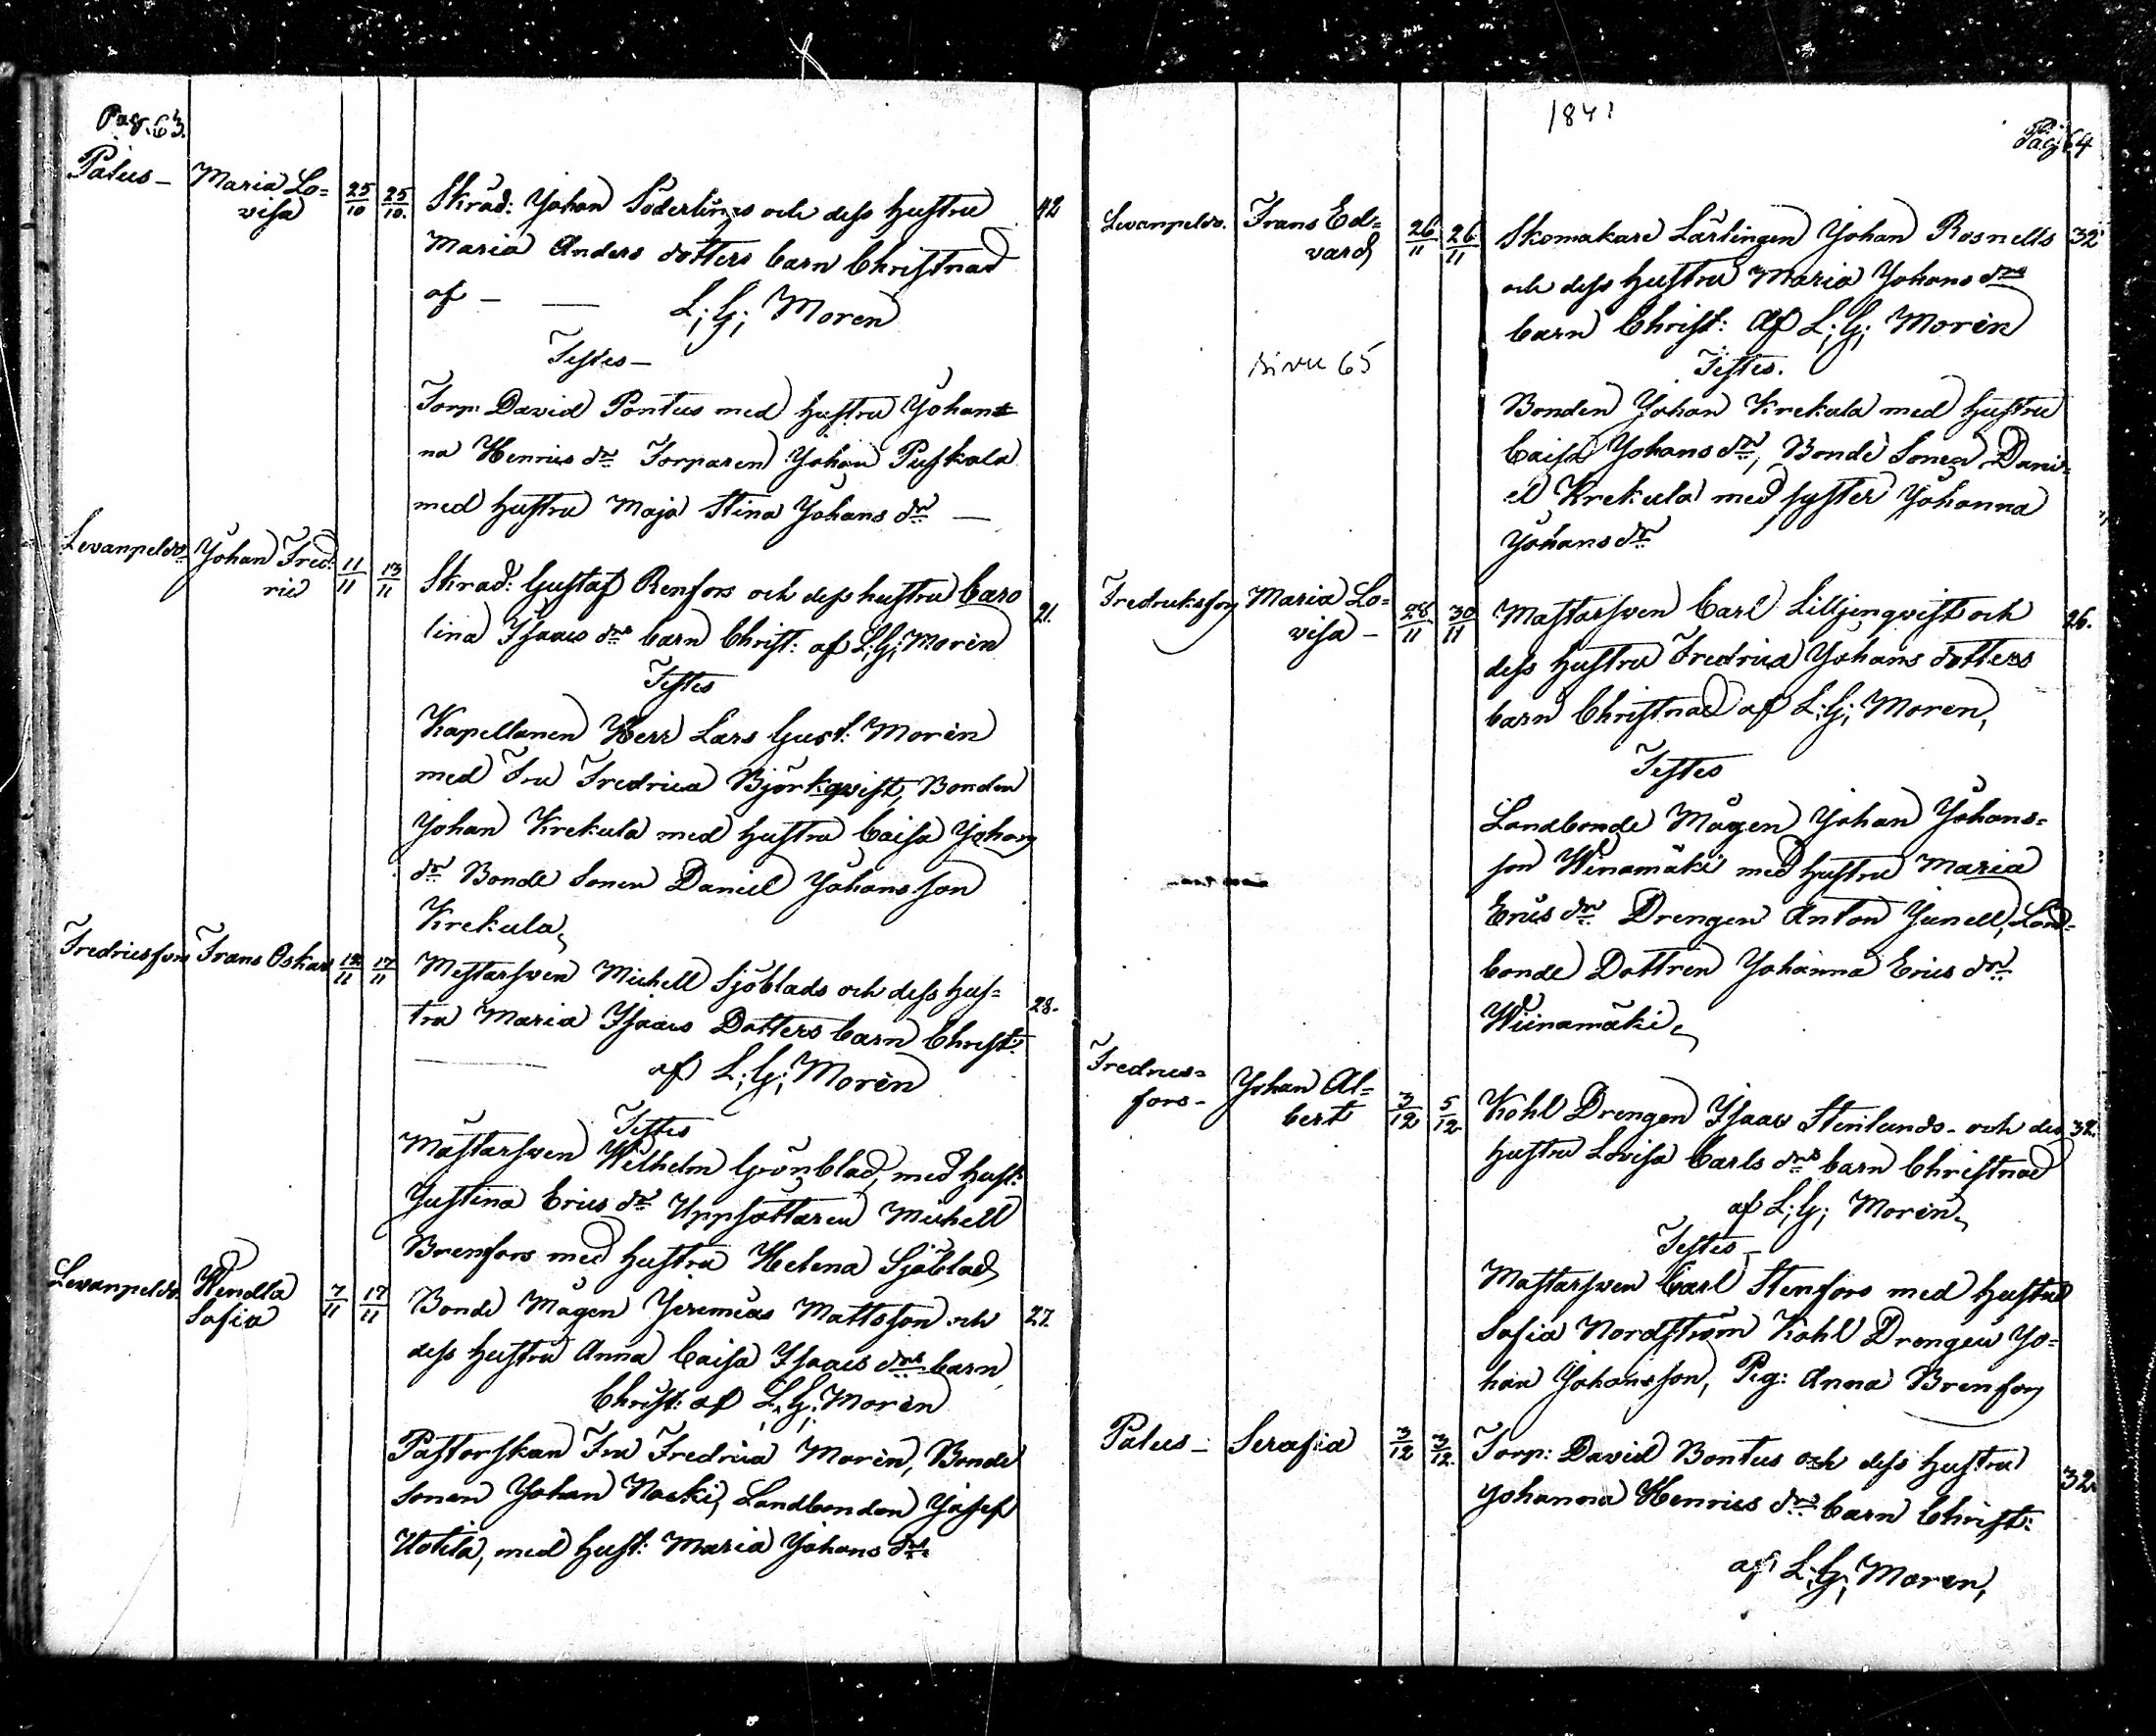 Pag. 63.
Palus –
Maria Lo=
visa
25/10
25/10.
Skräd: Johan Söderlings och dess hustru
Maria Anders dotters barn Christnad
af – — L; G; Moren
Testes –
Torp: David Pontus med hustru Johan=
na Henrics dr Torparen Johan Puskala
med hustru Maja Stina Johans dr —
42
Levanpelds.
Johan Fred=
ric
11/11
13/11
Skrad: Gustaf Renfors och dess hustru Caro
lina Isaacs drs barn Christ: af L; G; Morén
Testes
Kapellanen Herr Lars Gust: Morén
med Fru Fredrica Björkqvist, Bonden
Johan Krekula med hustru Caisa Johans
dr Bonde Sonen Daniel Johansson
Krekula,
21.
Fredricsfors
Frans Oskar
/11
17/11
Mestarsven Michell Sjöblads och dess hus=
tru Maria Isaacs Dotters barn Christ:
af L; G; Morén
Testes
Mästarsven Wilhelm Grönblad, med hust:
Justina Erics dr Uppsättaren Michell
Brenfors med hustru Helena Sjöblad
28.
Levanpelds.
Wendla
Sofia
7/11
17/11
Bonde Mågen Jeremias Mattsson och
dess hustru Anna Caisa Isaacs drs barn
Christ: af L; G; Morén
Pastorskan Fru Fredrica Morén, Bonde
Sonen Johan Nocki, Landbonden Josef
Uotila, med hust: Maria Johans dr
27.
1841
Pag 64
Levanpelds.
Frans Ed=
vard
26/11
26/11
Skomakare Lärlingen Johan Rosnells
och dess hustru Maria Johans drs
barn Christ: af L; G; Morén
Testes.
Bonden Johan Krekula med hustru
Caisa Johans dr, Bonde Sonen Dani=
el Krekula med syster Johanna
Johans dr
32
sivu 65
Fredriksfors
Maria Lo=
visa –
28/11
30/11
Mastarsven Carl Lilljenqvist och
dess hustru Fredrica Johans dotters
barn Christnad af L; G; Moren,
Testes
Landbonde Mågen Johan Johans=
son Winamäki med hustru Maria
Erics dr Drengen Anton Junell, Land=
bonde Dottren Johanna Erics dr
Wiinamäki,
26.
Fredrics=
fors –
Johan Al=
bert
3/12
5/12
Kohl Drengen Isaac Stenlunds – och dess
hustru Lovisa Carls drs barn Christnad
af L; G; Morén,
Testes –
Mastarsven Carl Stenfors med hustru
Sofia Nordström Kohl Drengen Jo=
han Johansson, Pig: Anna Brenfors
32.
Palus –
Serafia
3/12
3/12.
Torp: David Bontus och dess hustru
Johanna Henrics drs barn Christ:
af L; G; Moren,
32.